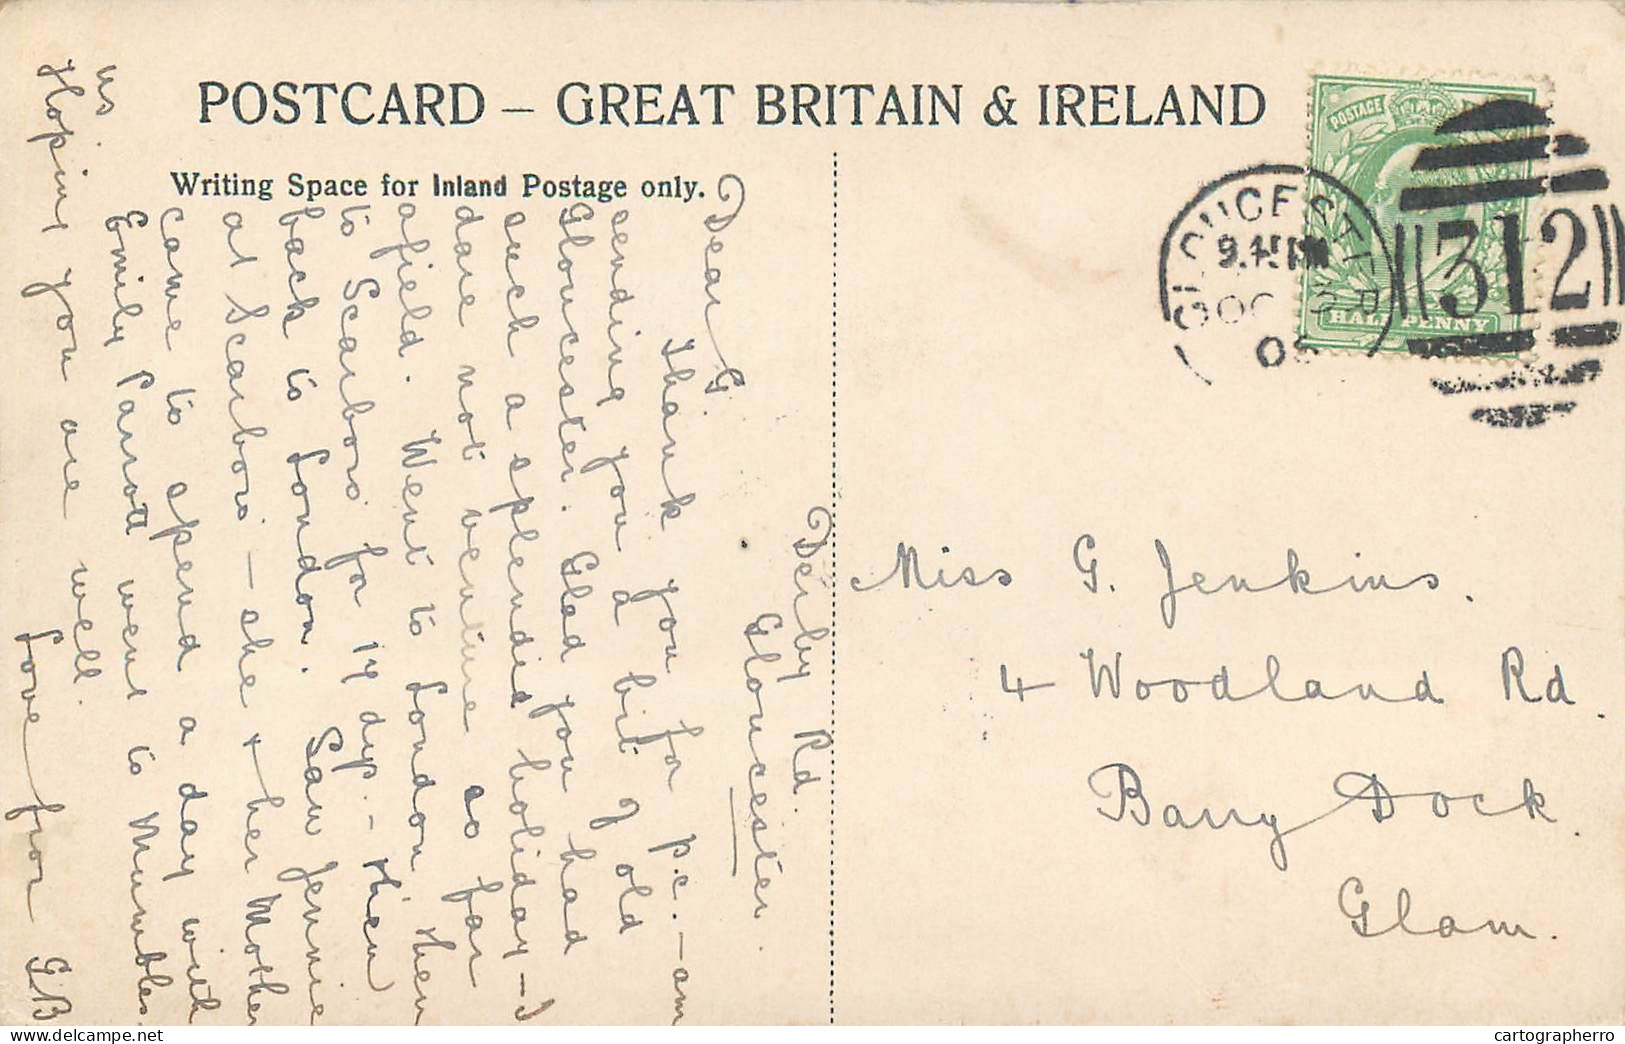 POSTCARD – GREAT BRITAIN & IRELAND
Writing Space for Inland Postage only.
Derby Rd.
Gloucester.
Dear G.
Thank you for p.c. – am
sending you a bit of old
Gloucester. Glad you had
such a splendid holiday – I
dare not venture so far
afield. Went to London, then
to Scarboro for 17 dys. – then
back to London. Saw Jennie
at Scarboro' – she & her Mother
came to spend a day with
us. Emily Parrott went to Mumbles.
Hoping you are well.
Love from G.B
Miss G. Jenkins.
4 Woodland Rd.
Barry Dock.
Glam.
POSTAGE
HALF PENNY
GLOUCESTER
9.15 PM
OC
312
cartographerro